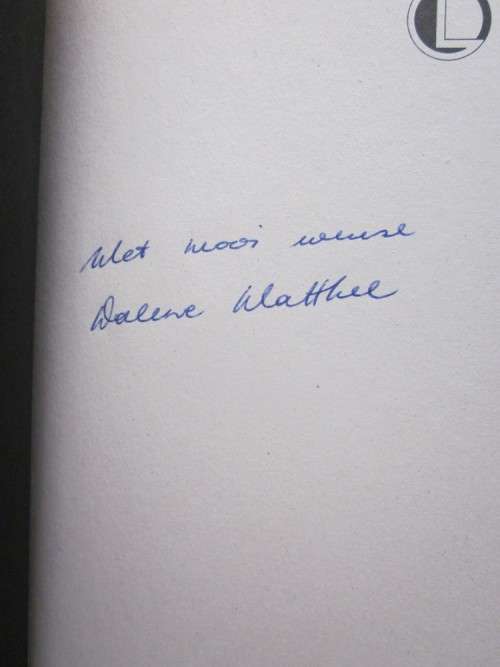 Met mooi wense
Dalene Matthee